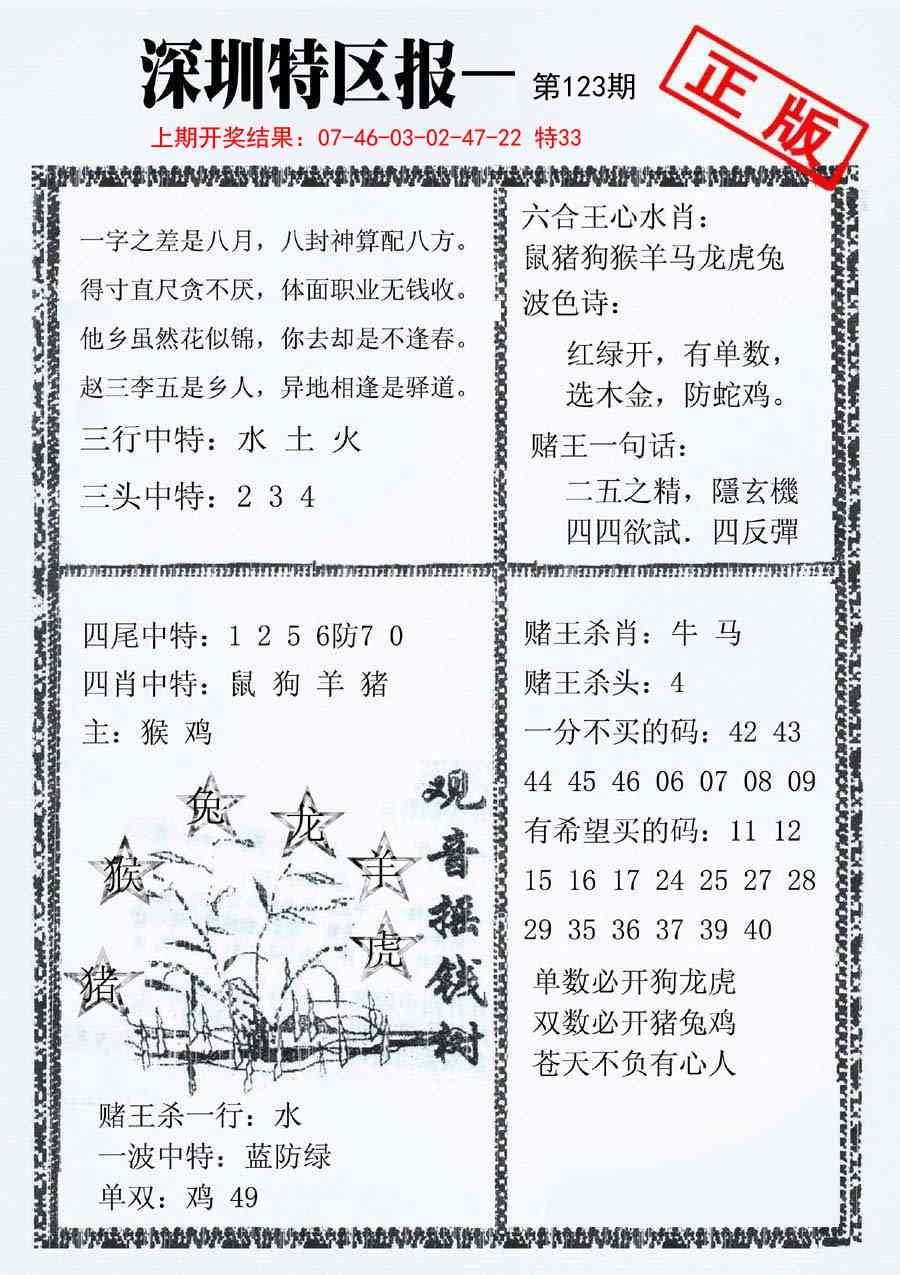 深圳特区报一 第123期
正版
上期开奖结果：07-46-03-02-47-22 特33
一字之差是八月，八封神算配八方。
得寸直尺贪不厌，体面职业无钱收。
他乡虽然花似锦，你去却是不逢春。
赵三李五是乡人，异地相逢是驿道。
三行中特：水 土 火
三头中特：2 3 4
六合王心水肖：
鼠猪狗猴羊马龙虎兔
波色诗：
红绿开，有单数，
选木金，防蛇鸡。
赌王一句话：
二五之精，隱玄機
四四欲試．四反彈
四尾中特：1 2 5 6防7 0
四肖中特：鼠 狗 羊 猪
主：猴 鸡
兔
龙
猴
羊
虎
猪
观音摇钱树
赌王杀一行：水
一波中特：蓝防绿
单双：鸡 49
赌王杀肖：牛 马
赌王杀头：4
一分不买的码：42 43
44 45 46 06 07 08 09
有希望买的码：11 12
15 16 17 24 25 27 28
29 35 36 37 39 40
单数必开狗龙虎
双数必开猪兔鸡
苍天不负有心人